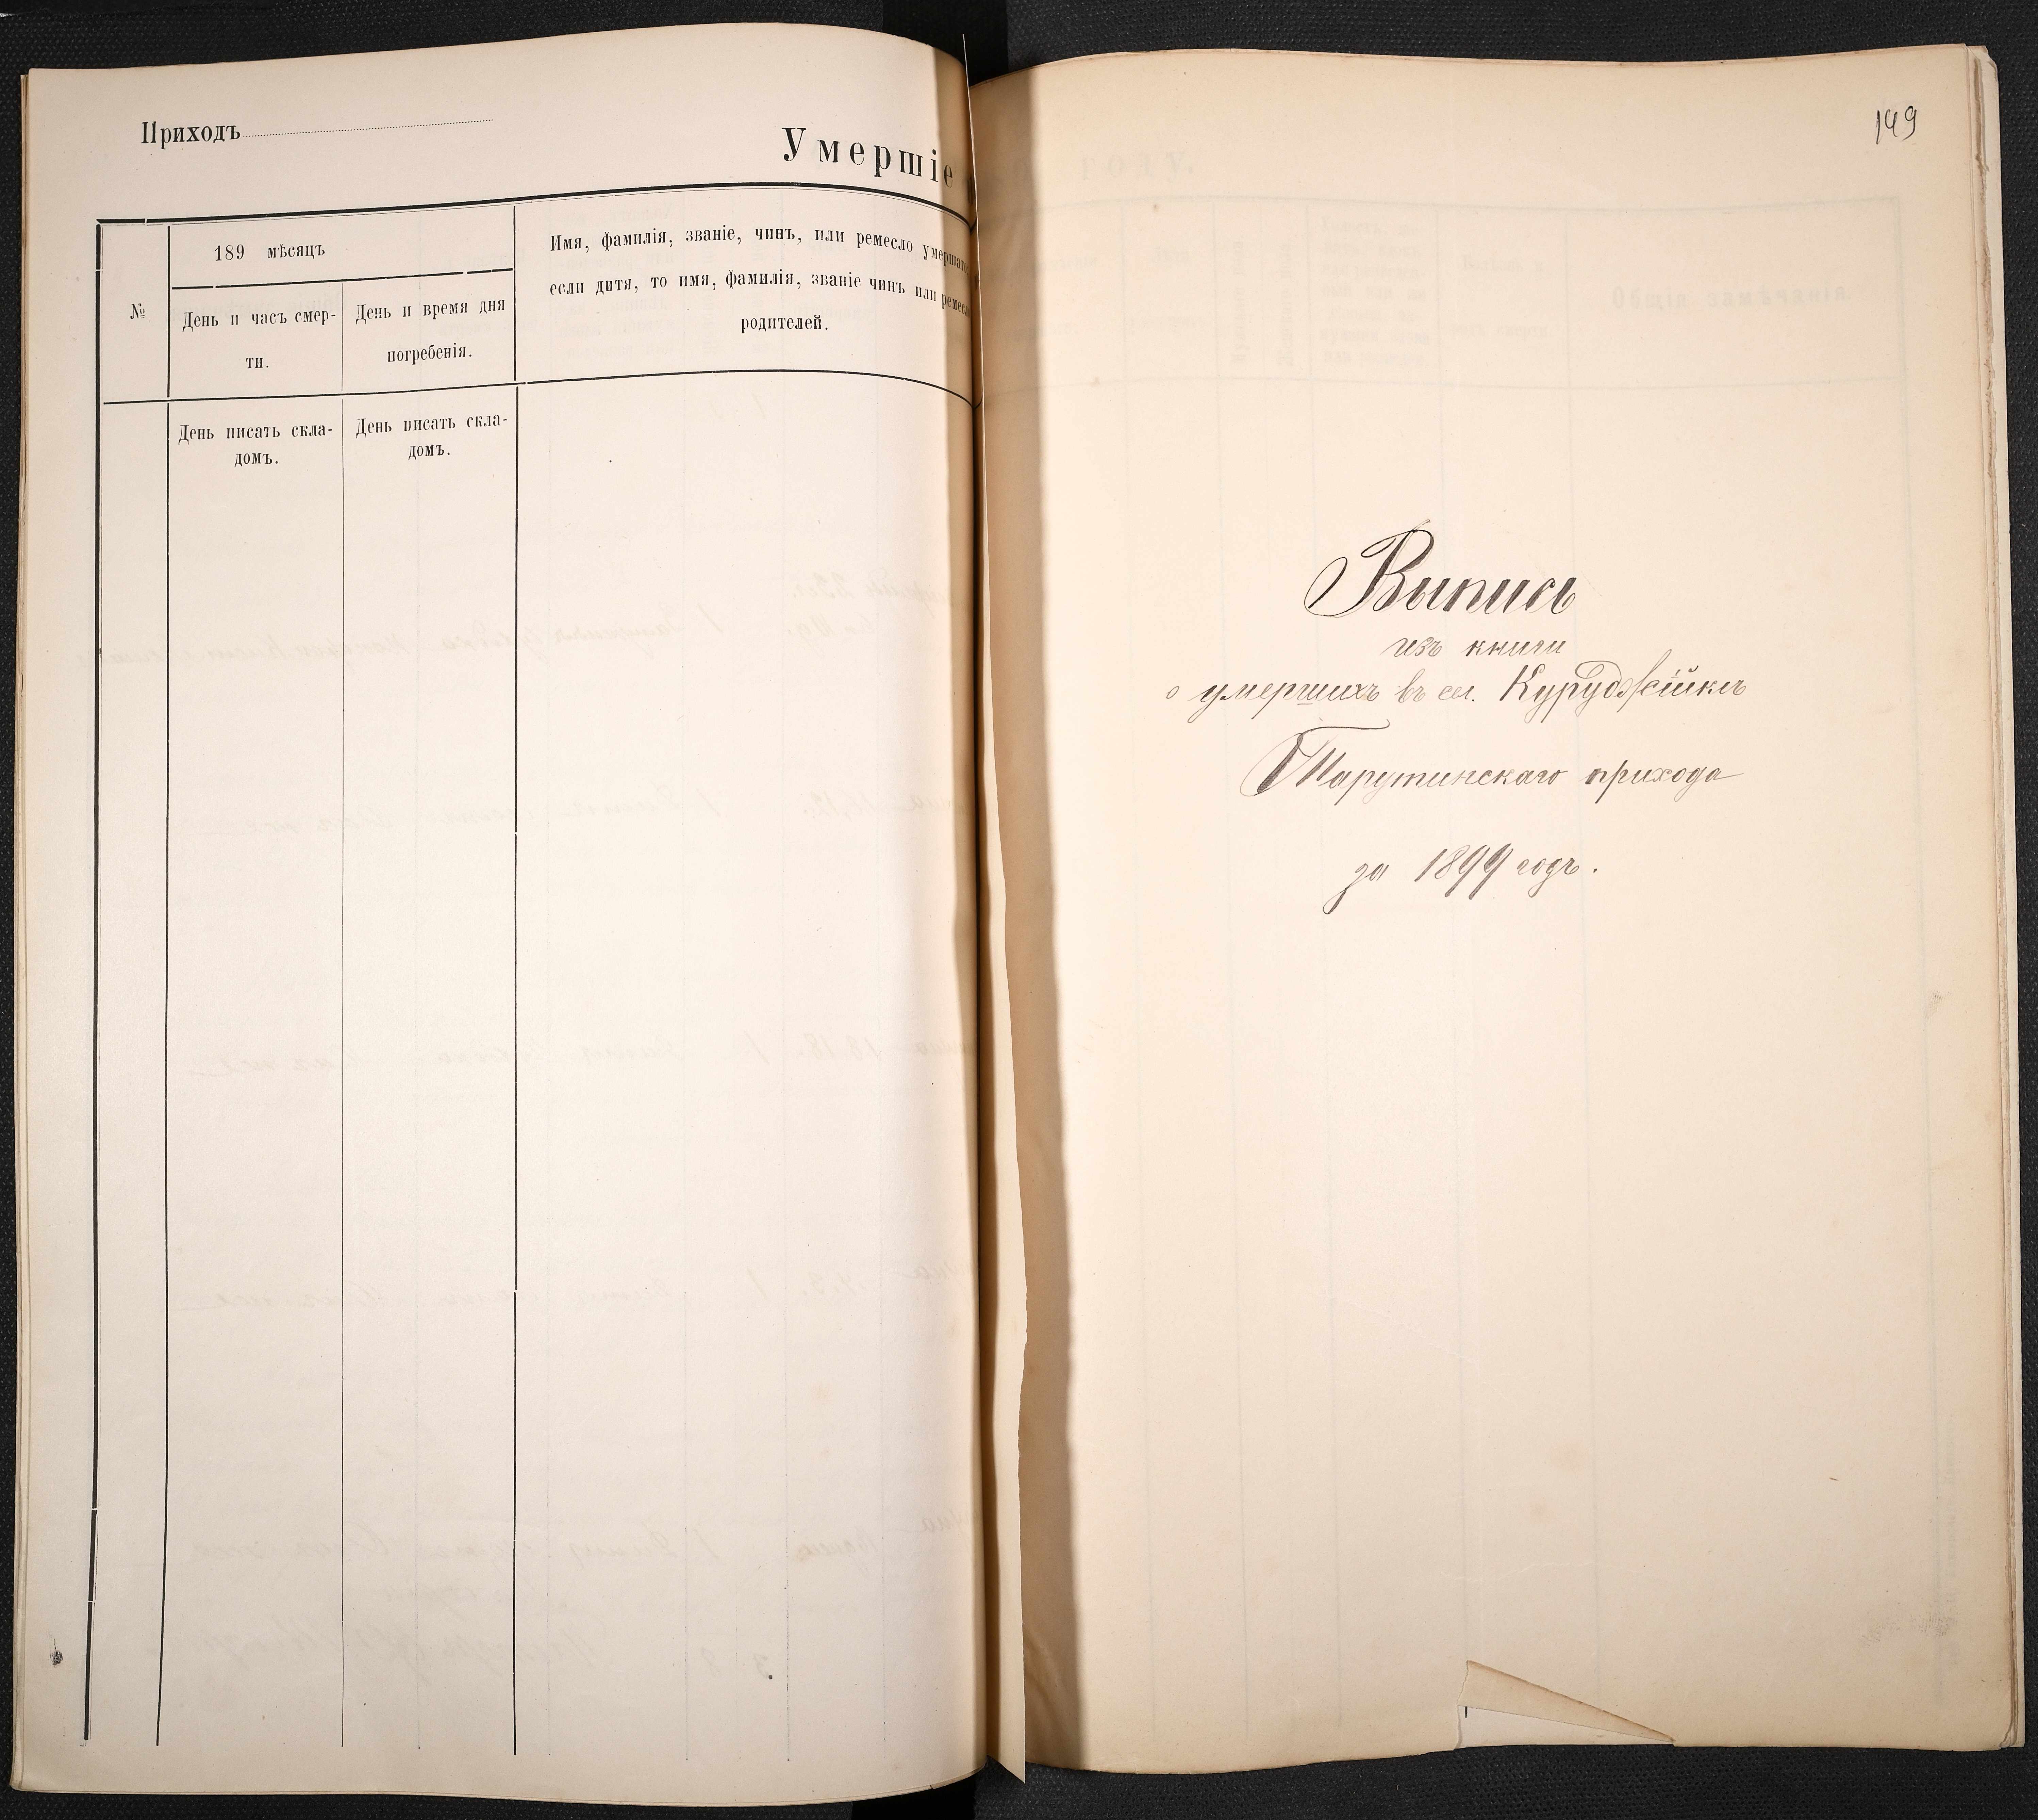 Приходъ
Умершіе
№
189 мѣсяцъ
День и часъ смер-
ти.
День и время дня
погребенія.
Имя, фамилія, званіе, чинъ, или ремесло умершаго,
если дитя, то имя, фамилія, званіе чинъ или ремесло
родителей.
День писать скла-
домъ.
День писать скла-
домъ.
149
Выпись
изъ книги
о умершихъ въ сел. Куруджійкѣ
Тарутинскаго прихода
за 1899 годъ.